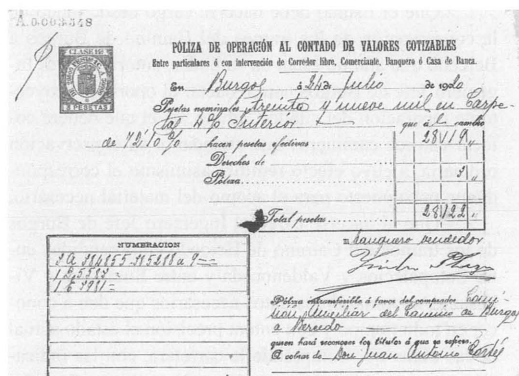 A.0.003.348
CLASE 12ª
3 PESETAS
PÓLIZA DE OPERACIÓN AL CONTADO DE VALORES COTIZABLES
Entre particulares ó con intervención de Corredor libre, Comerciante, Banquero ó Casa de Banca.
En Burgos á 24 de Julio de 1920
Pesetas nominales treinta y nueve mil en Carpe-
tas 4% Interior que á l cambio
de 72'10% hacen pesetas efectivas 28119 "
Derechos de
Póliza 3 "
Total pesetas 28122 "
NUMERACION
Banquero vendedor
Póliza intransferible á favor del comprador Comi-
sión Auxiliar del Camino de Burgos
a Bercedo
quien hará reconocer los títulos á que se refiere.
A cobrar de Don Juan Antonio Cortés